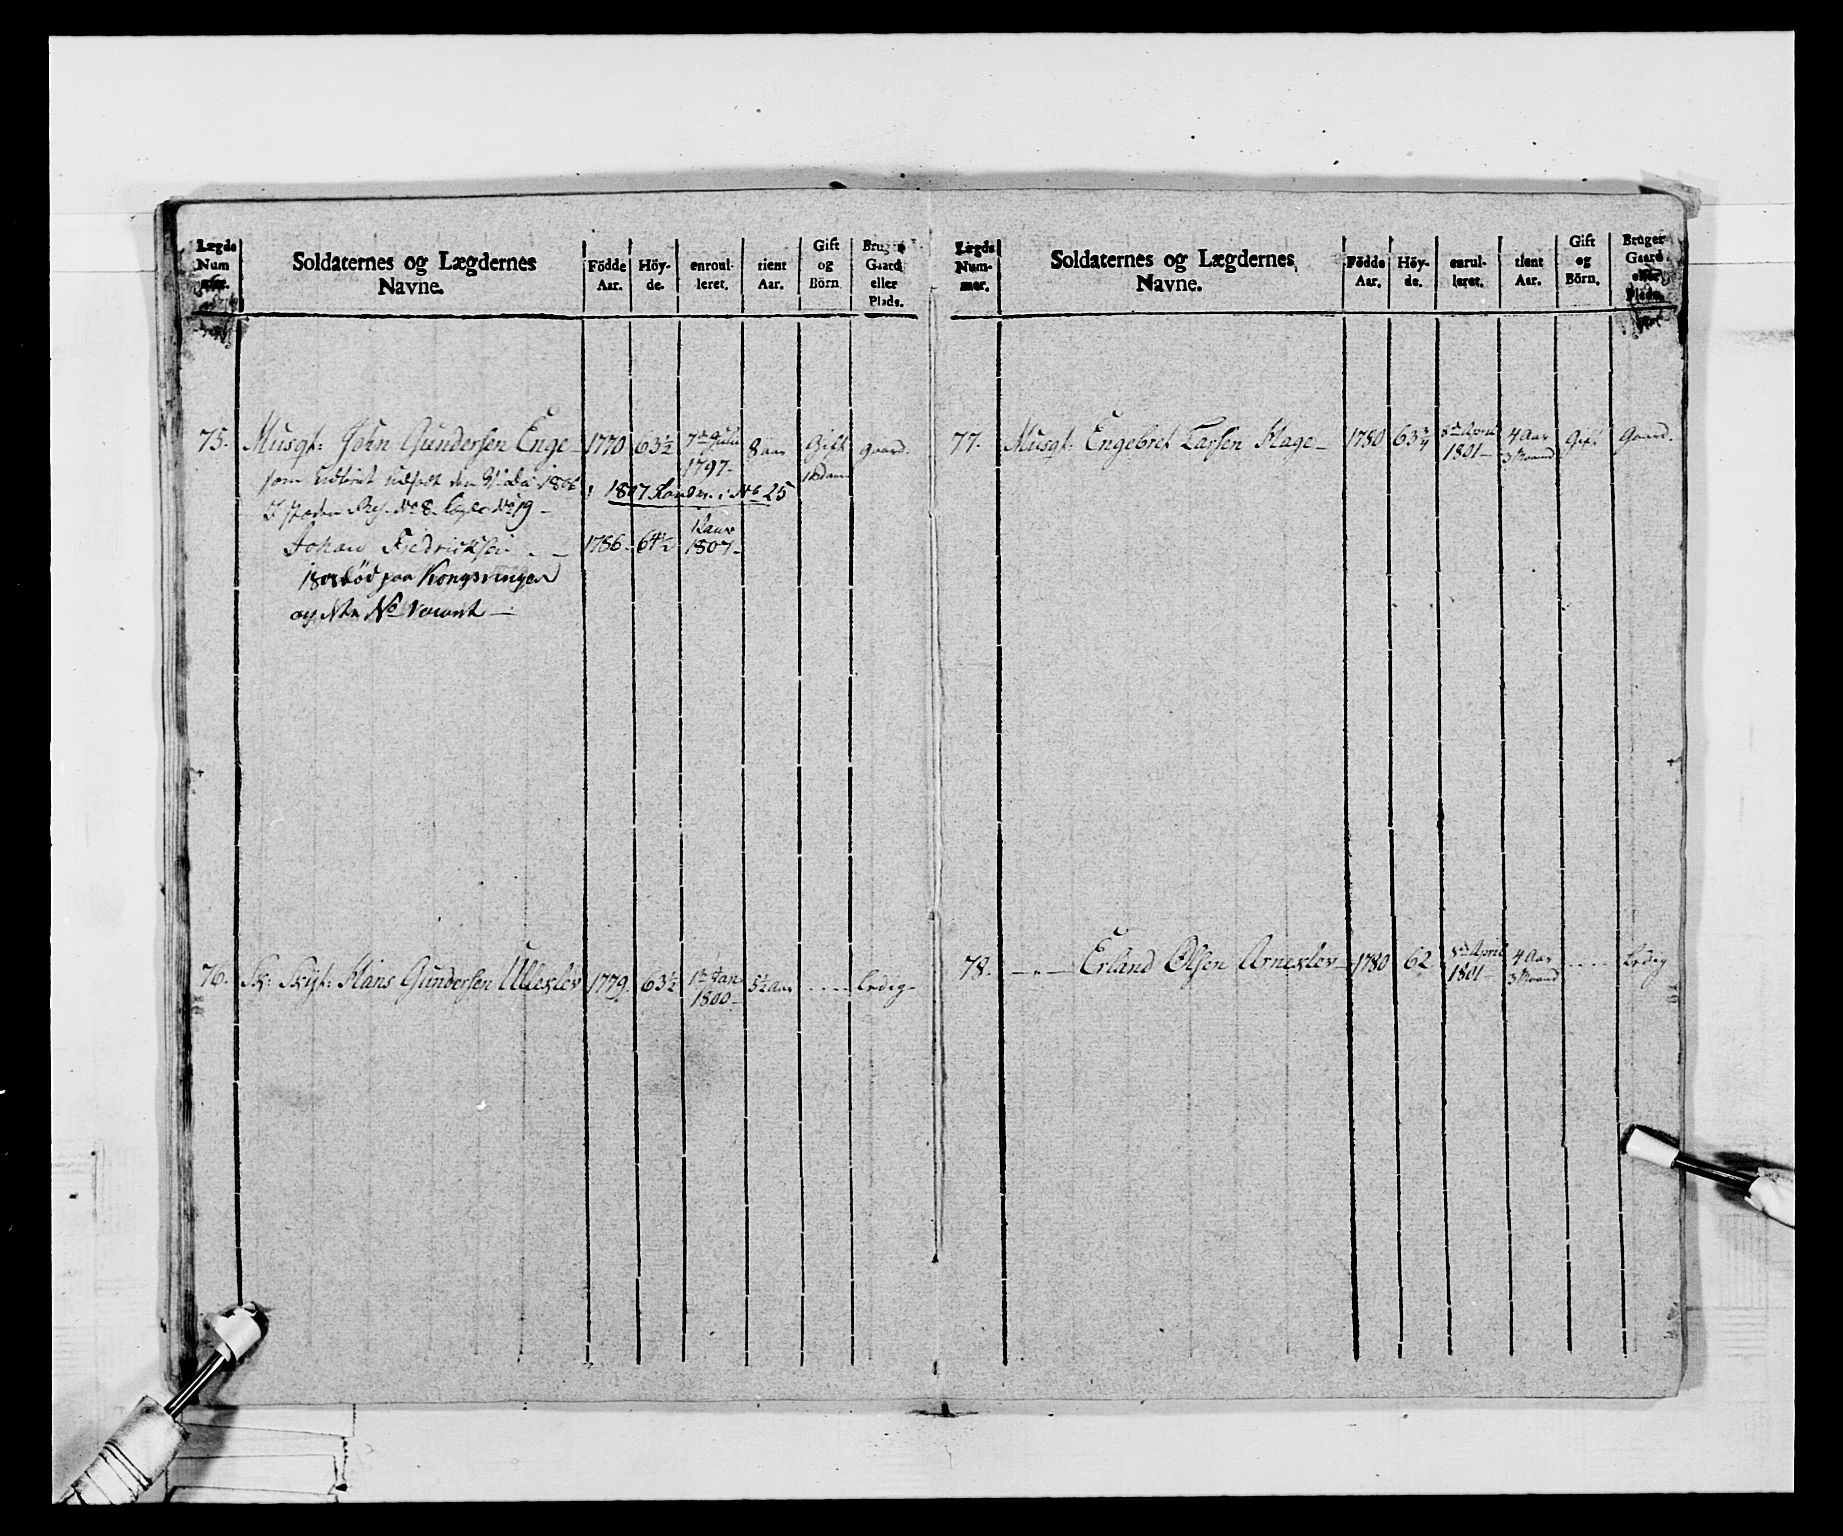 Lægds Num mer.
Soldaternes og Lægdernes Navne.
Födde Aar.
Höy- de.
enroul- leret.
tient Aar.
Gift og Börn
Bruger Gaard eller Plads.
75. Musqt: John Gundersen Enge - 1770 63½ 7de Julii 1797- 8 aar Gift 1 Barn gaard.
som udtient udsat den 1806
1807 i No 25
No 8 No 19 -
Johan Fredricksen - - 1786- 64½ 1 Janr 1807-
1808 död paa Kongsvinger
og No vacant -
76. Sk: Skyt: Hans Gundersen Ullexlev 1779. 63½ 1te Jan 1800- 5½ aar ---- ledig-
Lægds Num- mer.
Soldaternes og Lægdernes Navne.
Födde Aar.
Höy- de.
enrul- leret.
tient Aar.
Gift og Börn.
Bruger Gaard eller Plads.
77. Musqt: Engebret Larsen Hage- 1780 63¾ April 1801- 4 Aar 3 Maand Gift Gaard.
78. -"- Erland Olsen Arnexlev- 1780 62. April 1801- 4 Aar 3 Maand ---- ledig